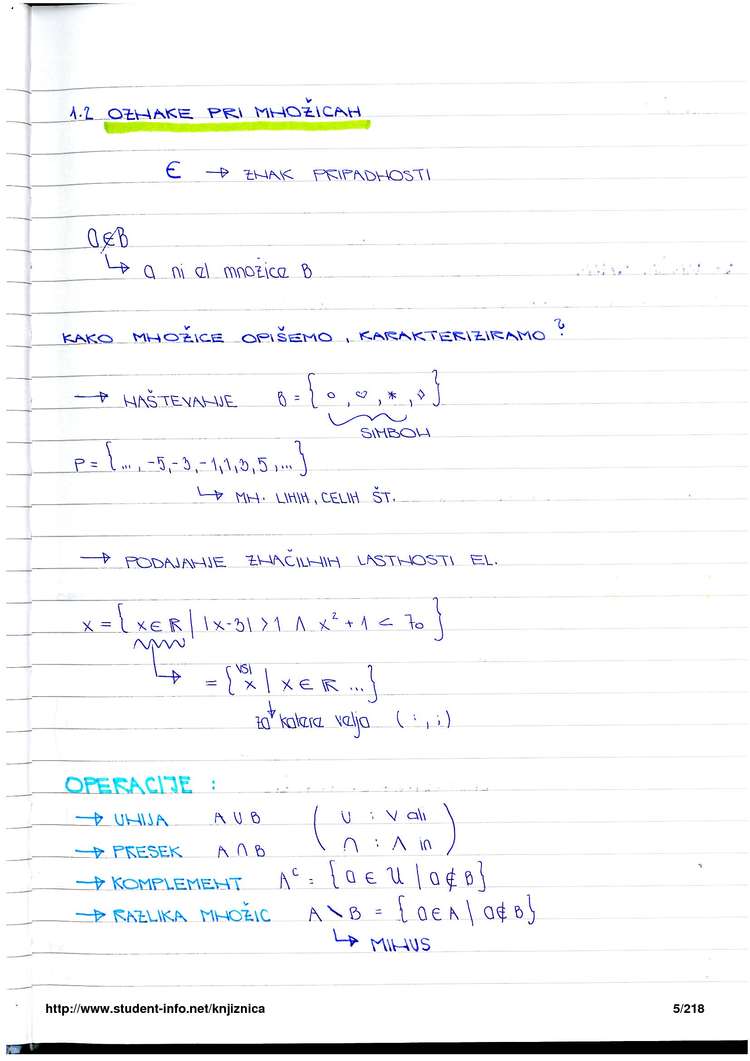 1.2 OZNAKE PRI MNOŽICAH
∈ → ZNAK PRIPADNOSTI
a∉B
↳ a ni el množice B
KAKO MNOŽICE OPIŠEMO, KARAKTERIZIRAMO?
→ NAŠTEVANJE B = {○, ♡, *, ◊}
SIMBOLI
P = {..., -5, -3, -1, 1, 3, 5, ...}
↳ MN. LIHIH, CELIH ŠT.
→ PODAJANJE ZNAČILNIH LASTNOSTI EL.
X = {x ∈ ℝ | |x-3| > 1 ∧ x² + 1 < 70}
VSI
↳ = {x | x ∈ ℝ ...}
za katere velja ( : , ; )
OPERACIJE :
→ UNIJA A ∪ B ( ∪ : ∨ ali
→ PRESEK A ∩ B ∩ : ∧ in )
→ KOMPLEMENT Aᶜ = {a ∈ U | a ∉ B}
→ RAZLIKA MNOŽIC A \ B = {a ∈ A | a ∉ B}
↳ MINUS
http://www.student-info.net/knjiznica 5/218